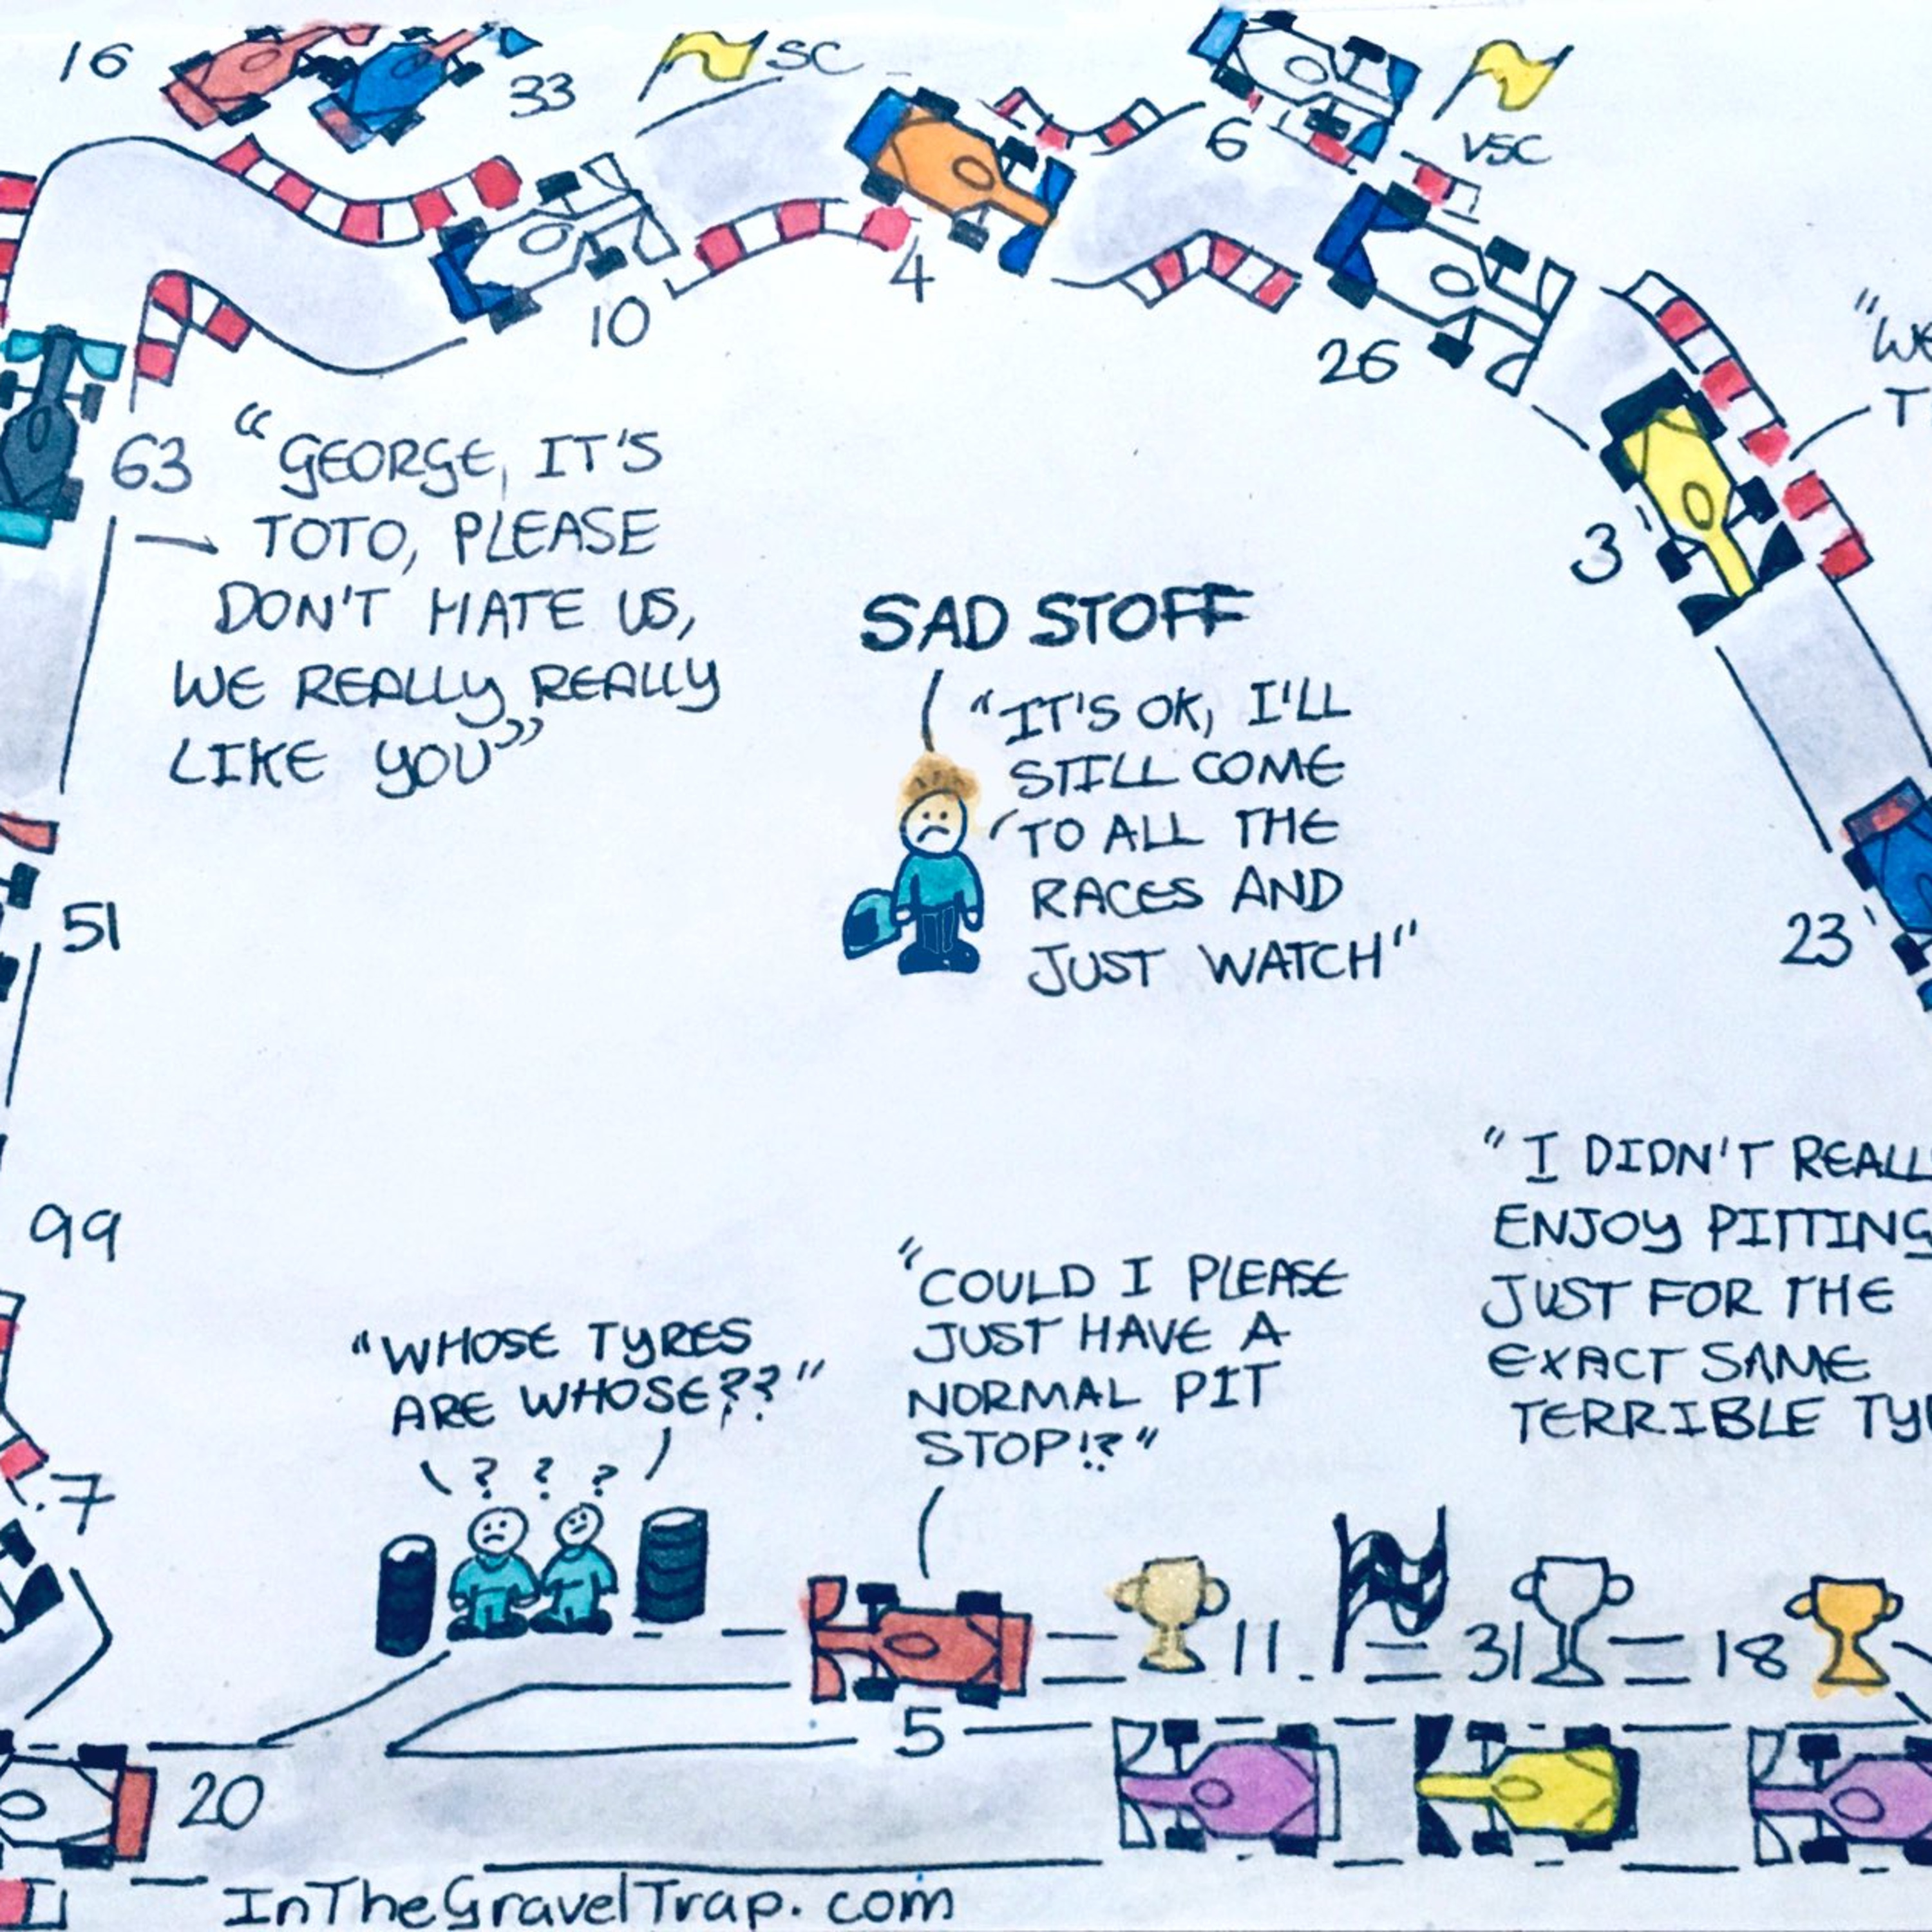 16
33
SC
6
VSC
10
4
26
3
63
"GEORGE, IT'S
TOTO, PLEASE
DON'T HATE US,
WE REALLY REALLY
LIKE YOU"
SAD STOFF
"IT'S OK, I'LL
STILL COME
TO ALL THE
RACES AND
JUST WATCH"
51
23
99
7
"WHOSE TYRES
ARE WHOSE??"
? ? ?
"COULD I PLEASE
JUST HAVE A
NORMAL PIT
STOP!?"
"I DIDN'T
ENJOY PITTING
JUST FOR THE
EXACT SAME
TERRIBLE
11
31
18
5
20
InTheGravelTrap.com